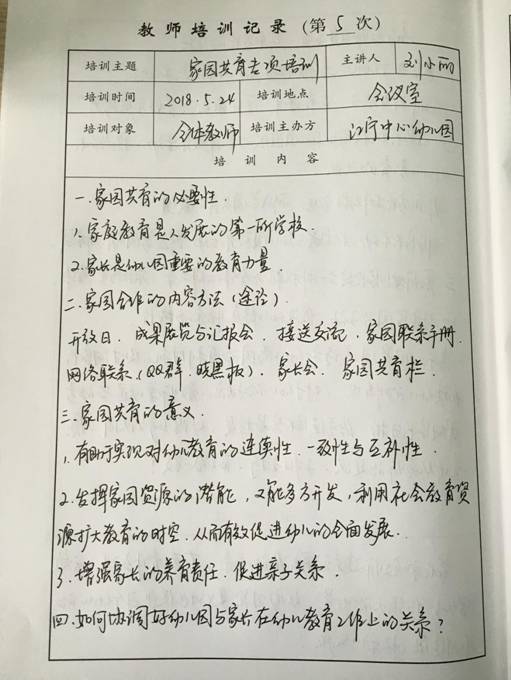 教师培训记录（第 5 次）
培训主题 家园共育专项培训 主讲人 刘小丽
培训时间 2018.5.24 培训地点 会议室
培训对象 全体教师 培训主办方 江宁中心幼儿园
培 训 内 容
一.家园共育的必要性.
1.家庭教育是人发展的第一所学校.
2.家长是幼儿园重要的教育力量.
二.家园合作的内容方法(途径).
开放日.成果展览与汇报会.接送交流.家园联系手册.
网络联系(QQ群.晓黑板).家长会.家园共育栏.
三.家园共育的意义.
1.有助于实现对幼儿教育的连续性.一致性与互补性.
2.发挥家园资源的潜能,又能多方开发,利用社会教育资
源扩大教育的时空.从而有效促进幼儿的全面发展.
3.增强家长的养育责任.促进亲子关系.
四.如何协调好幼儿园与家长在幼儿教育工作上的关系?